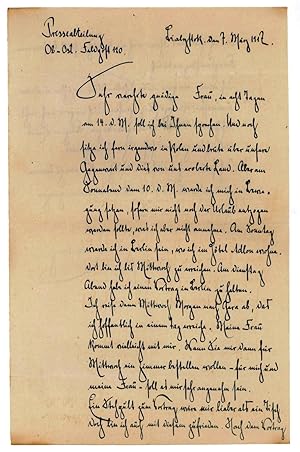 Presseabteilung
Ob-Ost. Feldpost 120.
Bialystok, den 7. März 1917.
Sehr verehrte gnädige Frau, in acht Tagen
am 14. d. M. soll ich bei Ihnen sprechen. Und noch
sitze ich fern irgendwo in Polen und brüte über unsere
Gegenwart und dies von uns eroberte Land. Aber am
Sonnabend dem 10. d. M. werde ich mich in Bewe-
gung setzen, sofern mir nicht noch der Urlaub entzogen
werden sollte, was ich aber nicht annehme. Am Sonntag
werde ich in Berlin sein, wo ich im Hôtel Adlon wohne.
Dort bin ich bis Mittwoch zu erreichen. Am Dienstag
Abend habe ich einen Vortrag in Berlin zu halten.
Ich reise dann Mittwoch Morgen nach ab, das
ich hoffentlich in einem Tag erreiche. Meine Frau
kommt vielleicht mit mir. Wenn Sie mir dann für
Mittwoch ein Zimmer bestellen wollen – für mich und
meine Frau – soll es mir sehr angenehm sein.
Ein Stehpult zum Vortrag wäre mir lieber als ein Tisch
doch bin ich auch mit diesem zufrieden. Nach dem Vortrag